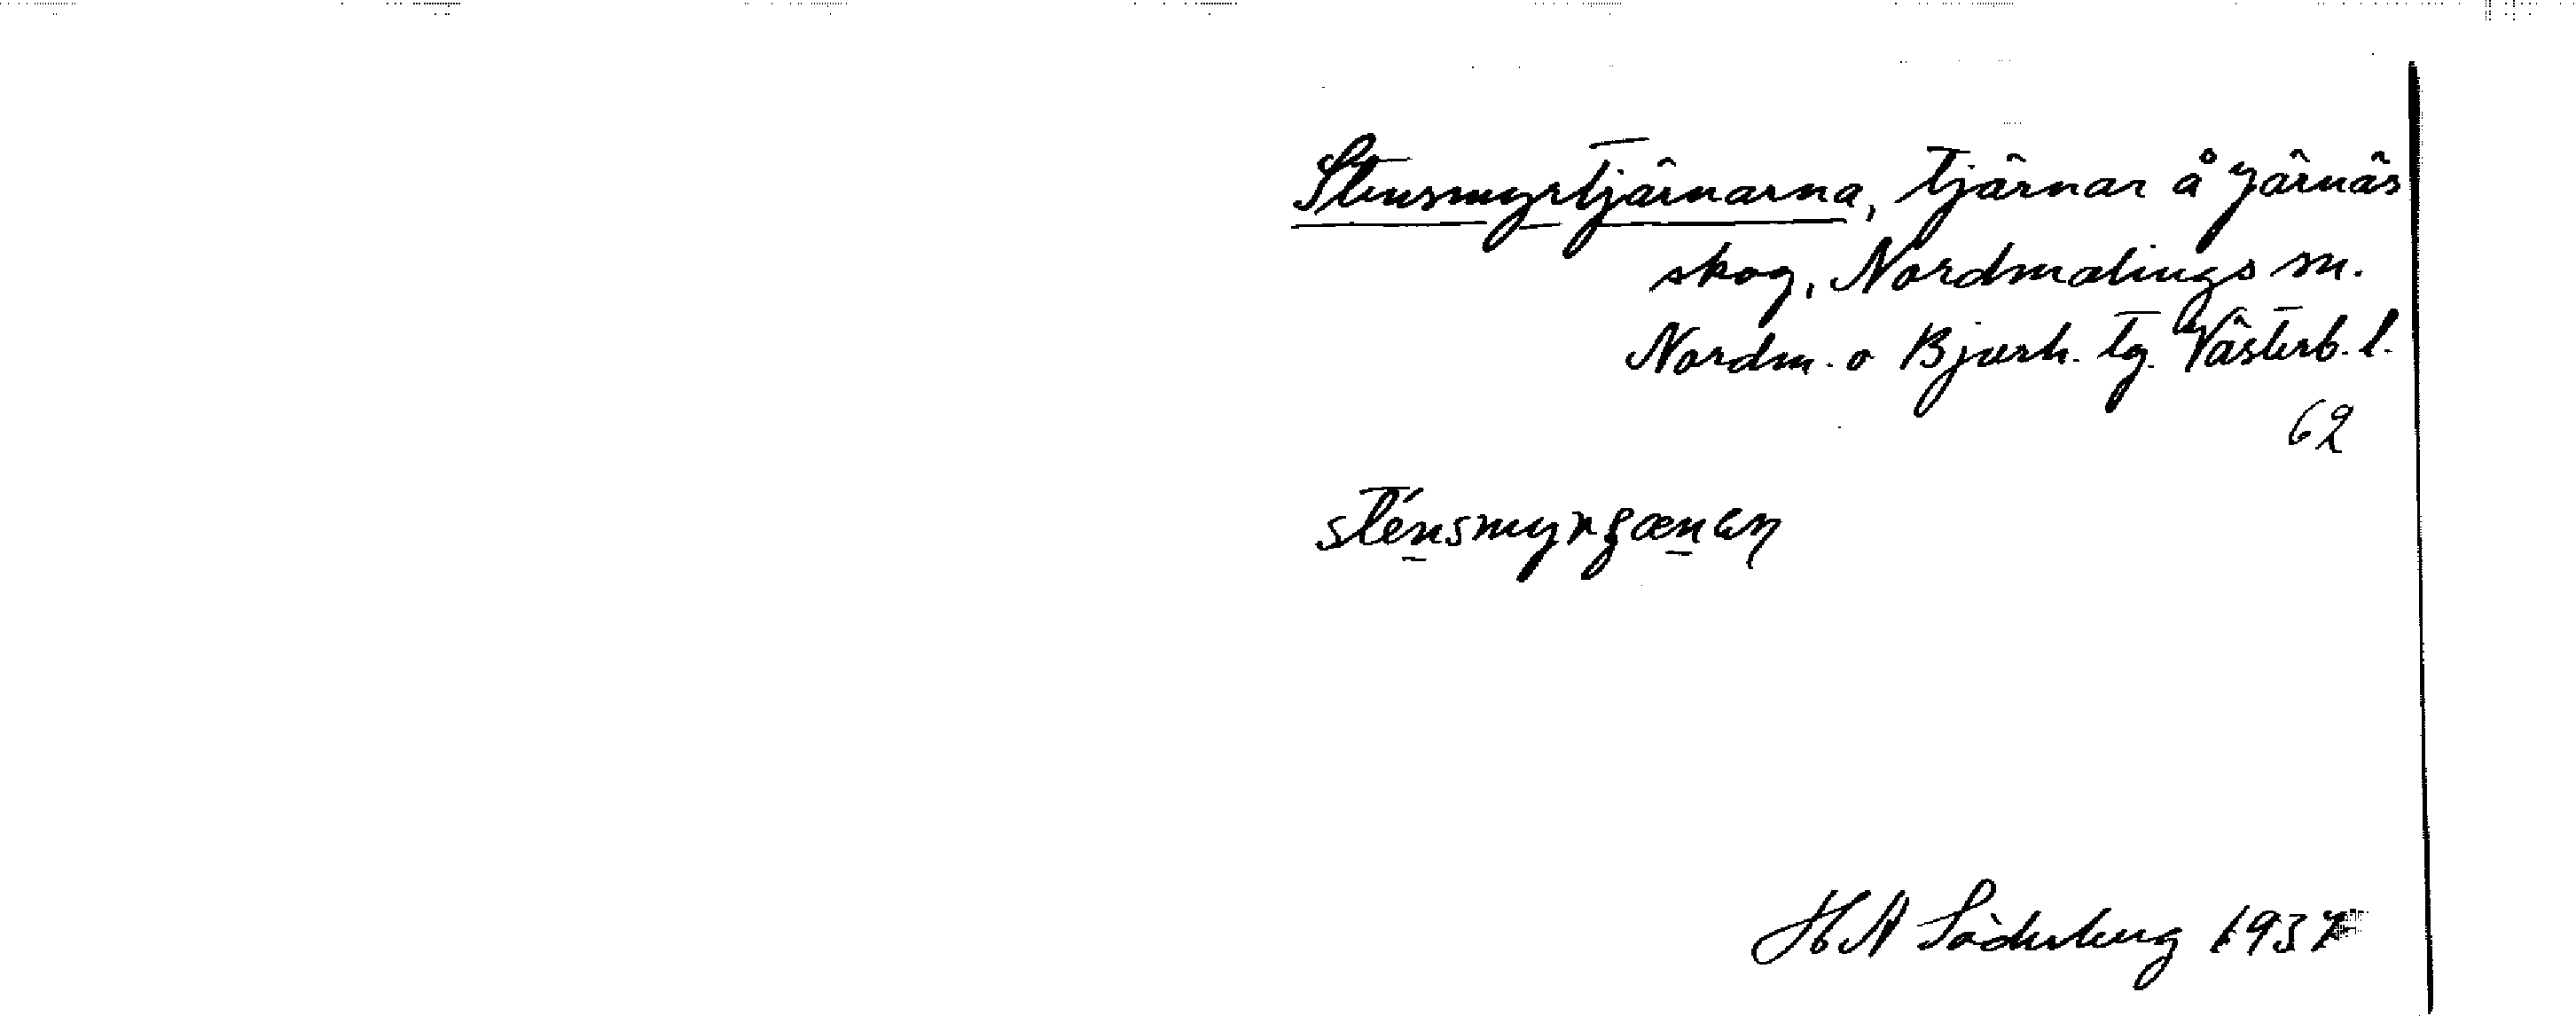 Stensmyrtjärnarna, tjärnar å Järnäs
skog, Nordmalings sn.
Nordm. o Bjurh. tg. Västerb. l.
62
H N Söderberg 1937